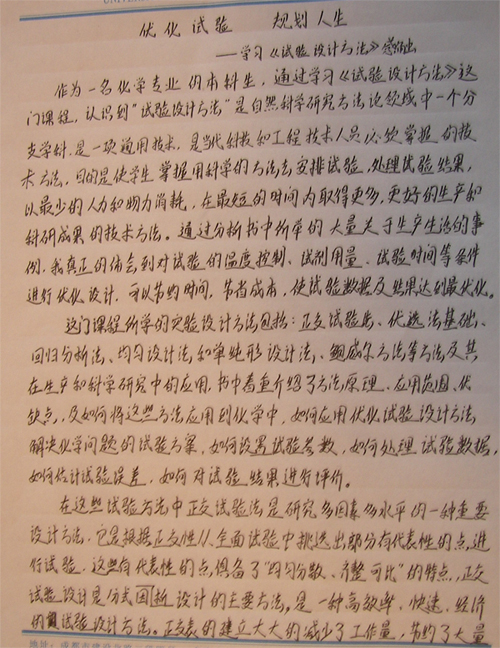 优化试验 规划人生
——学习《试验设计方法》感悟
作为一名化学专业的本科生，通过学习《试验设计方法》这
门课程，认识到"试验设计方法"是自然科学研究方法论领域中一个分
支学科，是一项通用技术，是当代科技和工程技术人员必须掌握的技
术方法，目的是使学生掌握用科学的方法去安排试验，处理试验结果，
以最少的人力和物力消耗，在最短的时间内取得更多，更好的生产和
科研成果的技术方法。通过分析书中所举的大量关于生产生活的事
例，我真正的体会到对试验的温度控制、试剂用量、试验时间等条件
进行优化设计，可以节约时间，节省成本，使试验数据及结果达到最优化。
这门课程所学的实验设计方法包括：正交试验法、优选法基础、
回归分析法、均匀设计法和单纯形设计法、鲍威尔方法等方法及其
在生产和科学研究中的应用，书中着重介绍了方法原理、应用范围、优
缺点，及如何将这些方法应用到化学中，如何应用优化试验设计方法
解决化学问题的试验方案，如何设置试验参数，如何处理试验数据，
如何估计试验误差，如何对试验结果进行评价。
在这些试验方法中正交试验法是研究多因素多水平的一种重要
设计方法，它是根据正交性从全面试验中挑选出部分有代表性的点进
行试验，这些有代表性的点具备了"均匀分散，齐整可比"的特点，正交
试验设计是分式因析设计的主要方法，是一种高效率、快速、经济
的试验设计方法。正交表的建立大大的减少了工作量，节约了大量